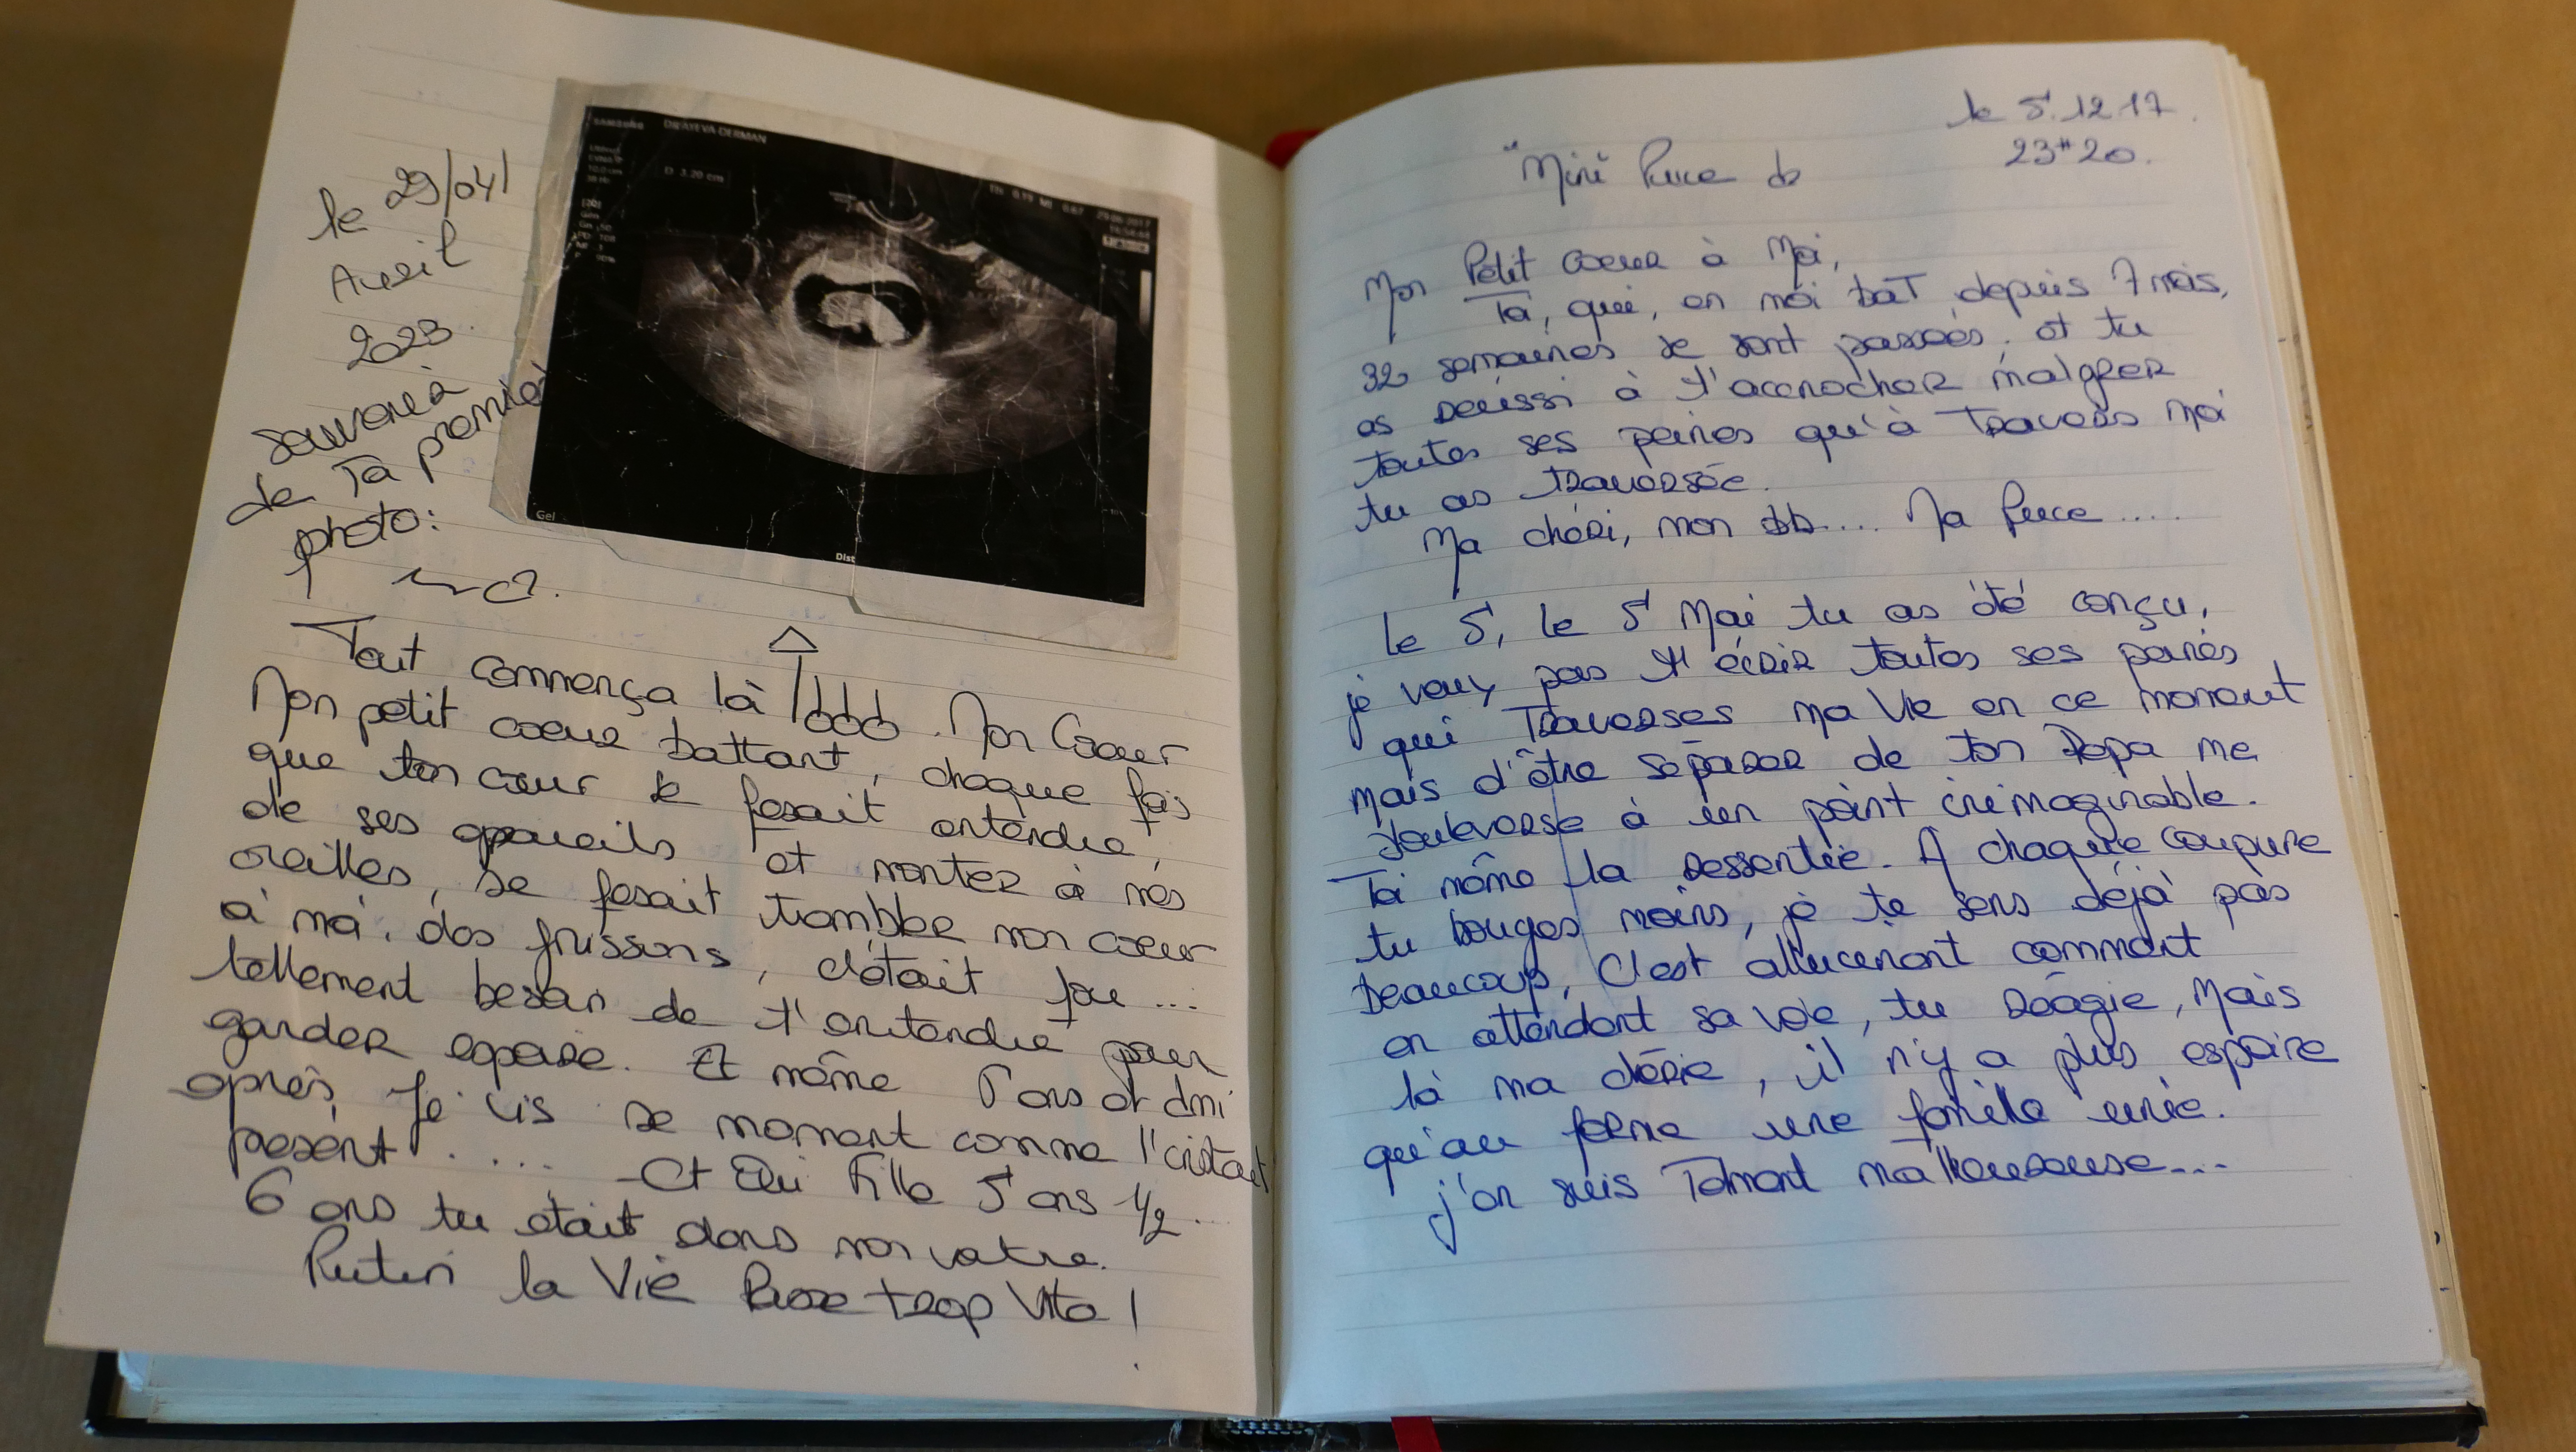 le 29/04/
Avril
2023.
Souvenir
de Ta première
photo:
SAMSUNG DR AYEVA DERMAN
D 3.20 cm
29-06-2017
Gel
Dist
Tout commença là . Mon Coeur
Mon petit coeur battant, chaque fois
que ton cœur se fesait entendre,
de ses appareils et montez à nos
oreilles, se fesait trambler mon cœur
à moi. dos frissons, c'était fou ...
tellement besoin de t'entendre pour
garder espoire. Et même 5 ans et dmi
après, Je vis se moment comme l'instant
présent ..... - Ct Oui Fille 5 ans 1/2 ...
6 ans tu était dans mon ventre.
Putin la Vie Passe trop Vite !
le 5.12.17.
23H20.
"Mini Puce
Mon Petit coeur à Moi,
Toi, qui, en moi bat depuis 7 mois,
32 semaines se sont passées. et tu
as réussi à t'accrocher malgrer
toutes ses peines qu'à Travers moi
tu as traversée.
Ma chéri, mon bb.... Ma Puce ....
Le 5, le 5 Mai tu as été conçu,
je veux pas t'écrir toutes ses peines
qui Traverses ma Vie en ce moment
mais d'être séparer de ton Papa me
bouleverse à un point inimaginable.
Toi même la ressentie. A chaque coupure
tu bouges moins, je te sens déjà pas
beaucoup, C'est allucinant comment
en attendant sa voie, tu réagie, Mais
là ma chérie, il n'y a plus espoire
qu'au forme une famille unie.
j'en suis Telment malheureuse...